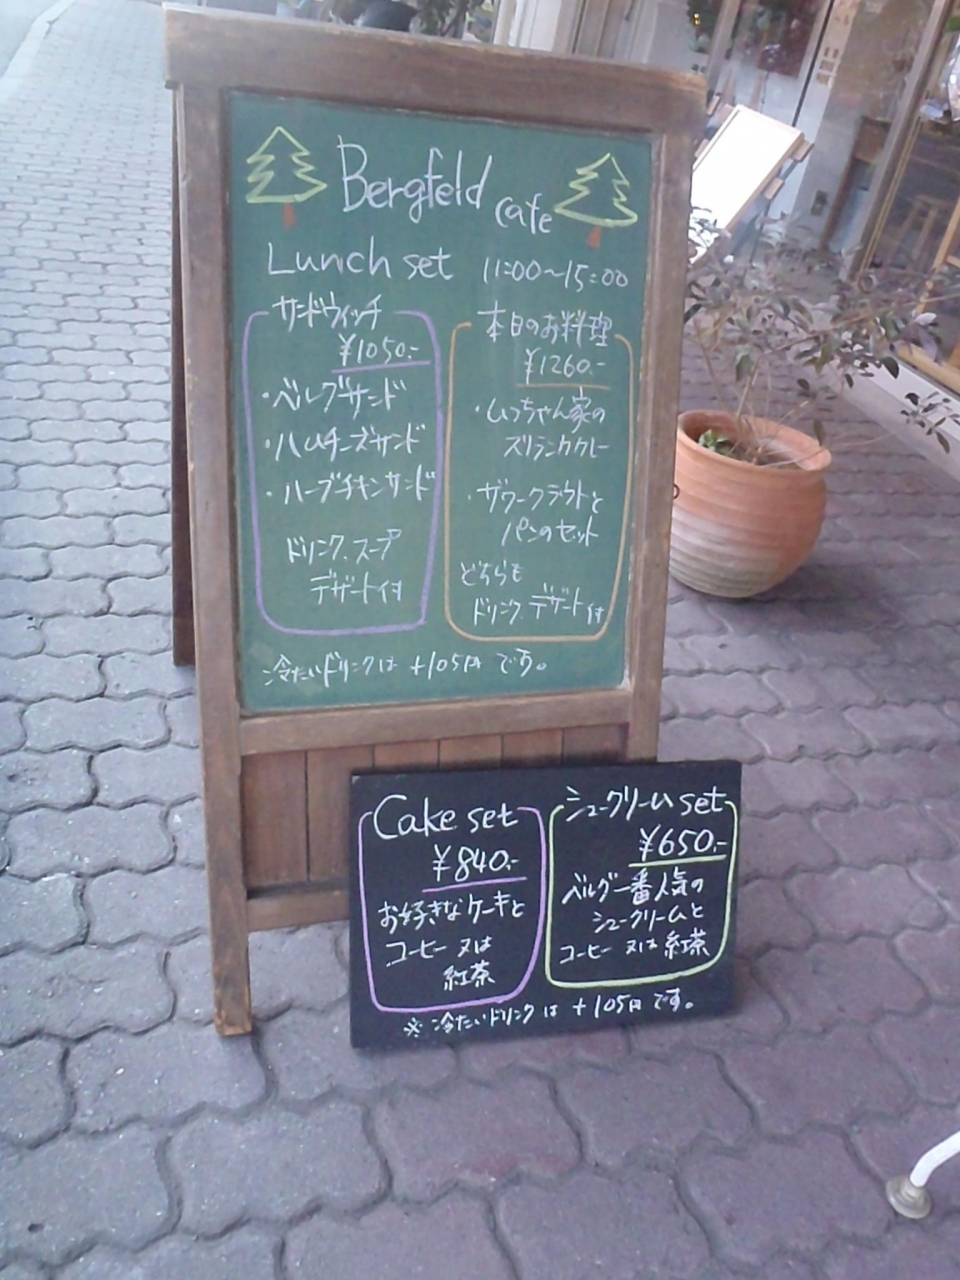 Bergfeld cafe
Lunch set 11:00〜15:00
サンドウィッチ
¥1050.-
・ベルグサンド
・ハムチーズサンド
・ハーブチキンサンド
ドリンク、スープ
デザート付
本日のお料理
¥1260.-
・いっちゃん家の
スリランカカレー
・ザワークラウトと
パンのセット
どちらも
ドリンク、デザート付
冷たいドリンクは +105円 です。
Cake set
¥840.-
お好きなケーキと
コーヒー 又は
紅茶
シュークリーム set
¥650.-
ベルグ一番人気の
シュークリームと
コーヒー 又は 紅茶
※ 冷たいドリンク は +105円 です。